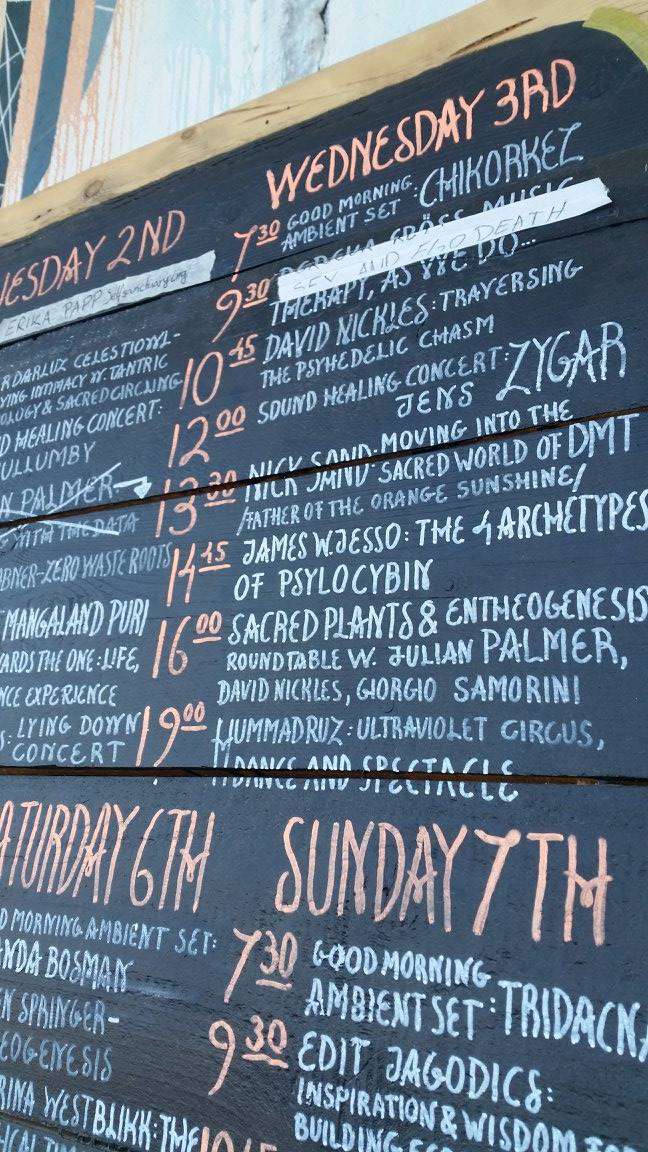 WEDNESDAY 3RD
7 30 GOOD MORNING
AMBIENT SET : CHIKORKEZ
MUSIC
SEX AND EGO DEATH
9 30 THERAPY, AS WE DO...
10 45 DAVID NICKLES: TRAVERSING
THE PSYHEDELIC CHASM
12 00 SOUND HEALING CONCERT: ZYGAR
JENS
13 30 NICK SAND: MOVING INTO THE
SACRED WORLD OF DMT
/FATHER OF THE ORANGE SUNSHINE/
14 45 JAMES W. JESSO: THE 4 ARCHETYPES
OF PSYLOCYBIN
16 00 SACRED PLANTS & ENTHEOGENESIS
ROUNDTABLE W. JULIAN PALMER,
DAVID NICKLES, GIORGIO SAMORINI
19 00 HUMMADRUZ: ULTRAVIOLET CIRCUS,
DANCE AND SPECTACLE
UESDAY 2ND
ERIKA PAPP
R DARLUZ CELESTIOWL-
YING INTIMACY W. TANTRIC
OLOGY & SACRED CIRCLING
D HEALING CONCERT:
ULLUMBY
N PALMER
WITH THE DATA
ABNER-ZERO WASTE ROOTS
MANGALAND PURI
ARDS THE ONE: LIFE,
NCE EXPERIENCE
S: LYING DOWN
CONCERT
ATURDAY 6TH
D MORNING AMBIENT SET:
NDA BOSMAN
N SPRINGER-
EOGENESIS
RINA WESTBLIKK: THE
HEALING
SUNDAY 7TH
7 30 GOOD MORNING
AMBIENT SET : TRIDACNA
9 30 EDIT JAGODICS:
INSPIRATION & WISDOM FOR
BUILDING
10 45